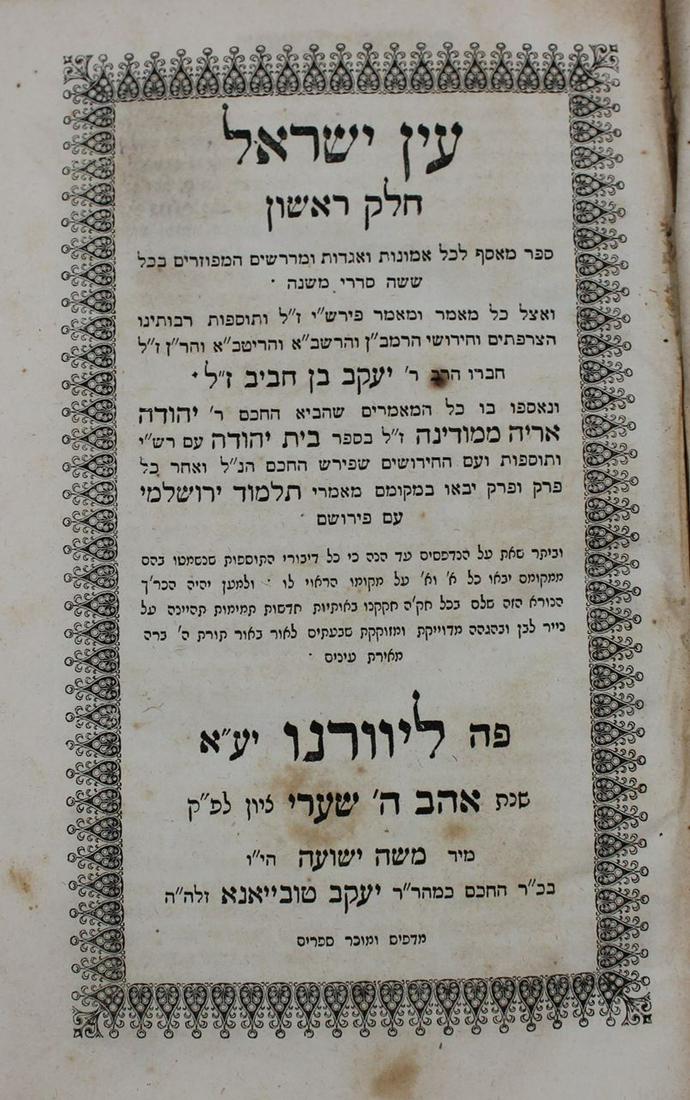 עין ישראל
חלק ראשון
ספר מאסף לכל אמונות ואגדות ומדרשים המפוזרים בכל
ששה סדרי משנה ·
ואצל כל מאמר ומאמר פירש״י ז״ל ותוספות רבותינו
הצרפתים וחידושי הרמב״ן והרשב״א והריטב״א והר״ן ז״ל
חברו הרב ר׳ יעקב בן חביב ז״ל ·
ונאספו בו כל המאמרים שהביא החכם ר׳ יהודה
אריה ממודינה ז״ל בספר בית יהודה עם רש״י
ותוספות ועם החידושים שפירש החכם הנ״ל ואחר כל
פרק ופרק יבאו במקומם מאמרי תלמוד ירושלמי
עם פירושם ·
וביתר שאת על הנדפסים עד הנה כי כל דיבורי התוספות שנשמטו בהם
ממקומם יבאו כל א׳ וא׳ על מקומו הראוי לו · ולמען יהיה הכר״ך
הנורא הזה שלם בכל חק״ה חקקנו באותיות חדשות תמימות תהיינה על
נייר לבן ובהגהה מדוייקת ומזוקקת שבעתים לאור באור תורת ה׳ ברה
מאירת עינים ·
פה ליוורנו יע״א
שנת אהב ה׳ שערי ציון לפ״ק
מיד משה ישועה הי״ו
בכ״ר החכם כמהר״ר יעקב טובייאנא זלה״ה
מדפיס ומוכר ספרים